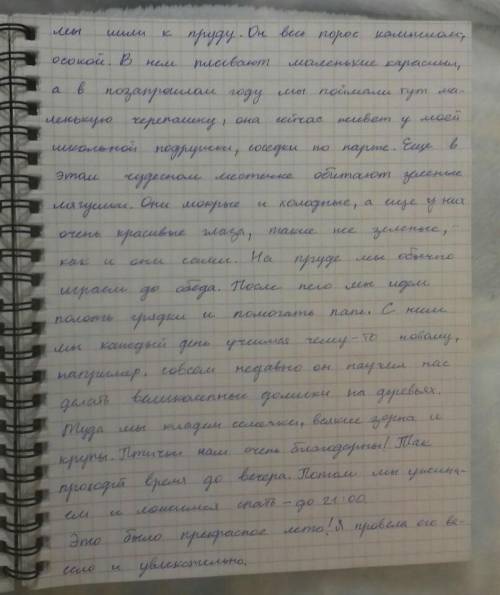 мы шли к пруду. Он весь порос камышом,
осокой. В нем плавают маленькие карасики,
а в позапрошлом году мы поймали тут ма-
ленькую черепашку, она сейчас живет у моей
школьной подружки, соседки по парте. Еще в
этом чудесном местечке обитают зеленые
лягушки. Они мокрые и холодные, а еще у них
очень красивые глаза, такие же зеленые,
как и они сами. На пруде мы обычно
играем до обеда. После него мы идем
полоть грядки и помогать папе. С ним
мы каждый день учимся чему-то новому,
например. совсем недавно он научил нас
делать великолепные домики на деревьях.
Туда мы кладем семечки, всякие зерна и
крупы. Птички нам очень благодарны! Так
проходит время до вечера. Потом мы ужина-
ем и ложимся спать - до 21:00
Это было прекрасное лето! Я провела его ве-
село и увлекательно.